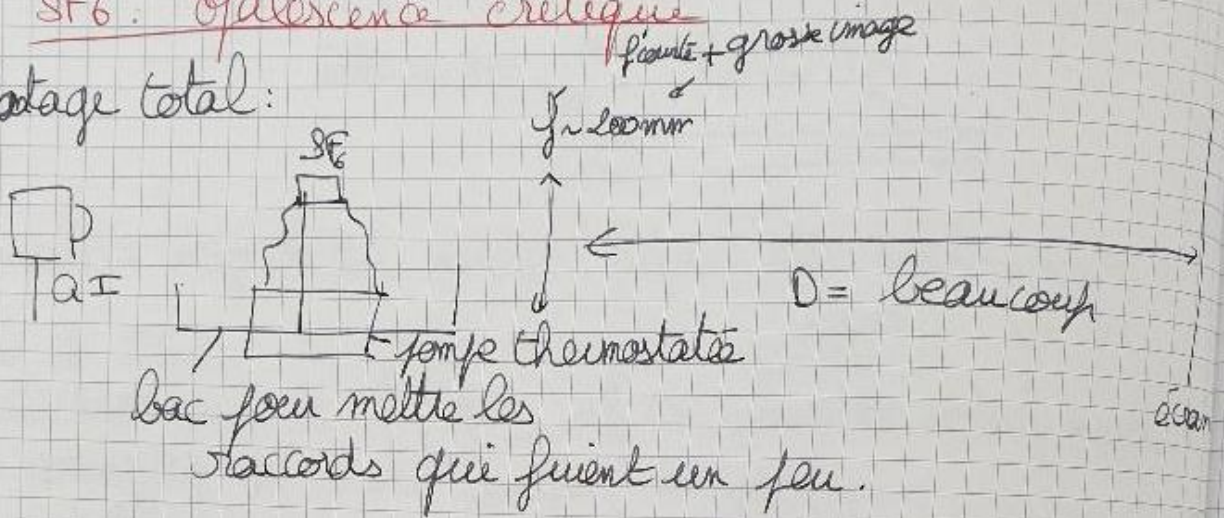 SF6: Opalescence critique
f courte + grosse image
Montage total:
f ~ 200mm
SF6
QI
D = beaucoup
pompe thermostatée
bac pour mettre les
écran
raccords qui fuient un peu.